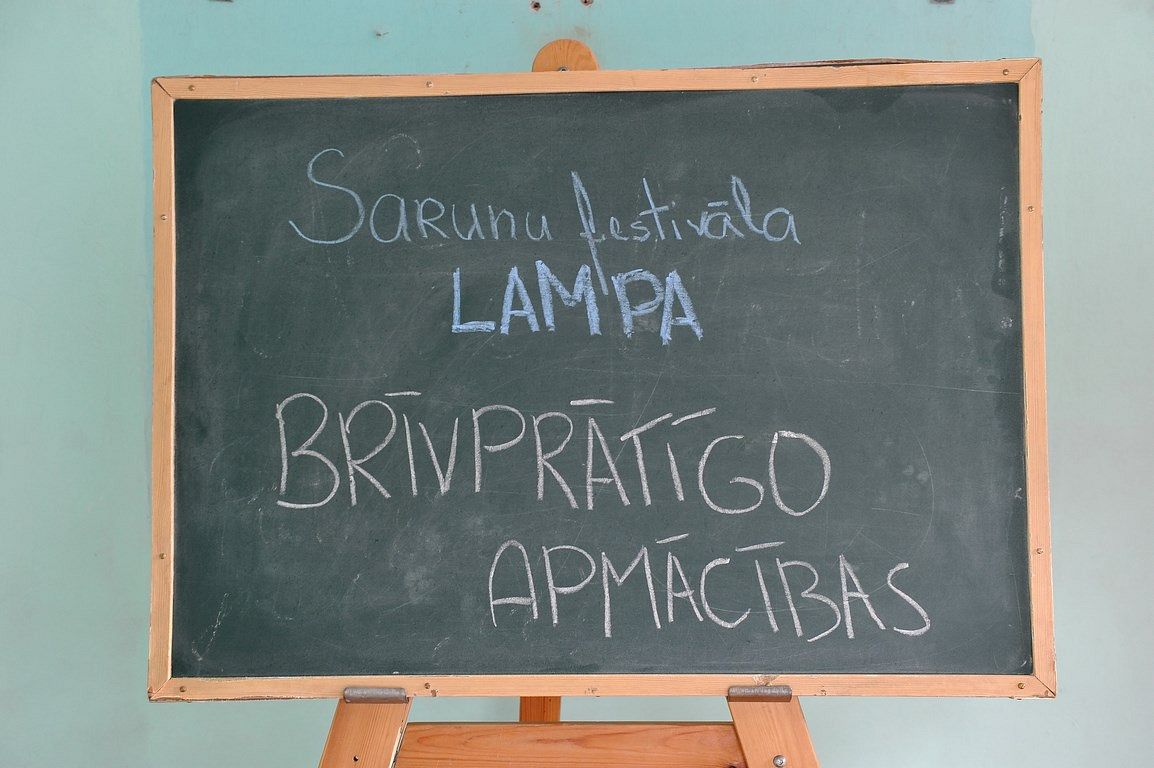 Sarunu festivāla
LAMPA
BRĪVPRĀTĪGO
APMĀCĪBAS